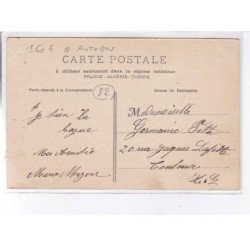 CARTE POSTALE
à utiliser seulement dans le régime intérieur
FRANCE - ALGÉRIE - TUNISIE
Partie réservée à la Correspondance
Adresse du Destinataire
82
Je tien la
Mes Amitié
Mademoiselle
Germaine
20 rue Jaques Lafitte
Toulouse